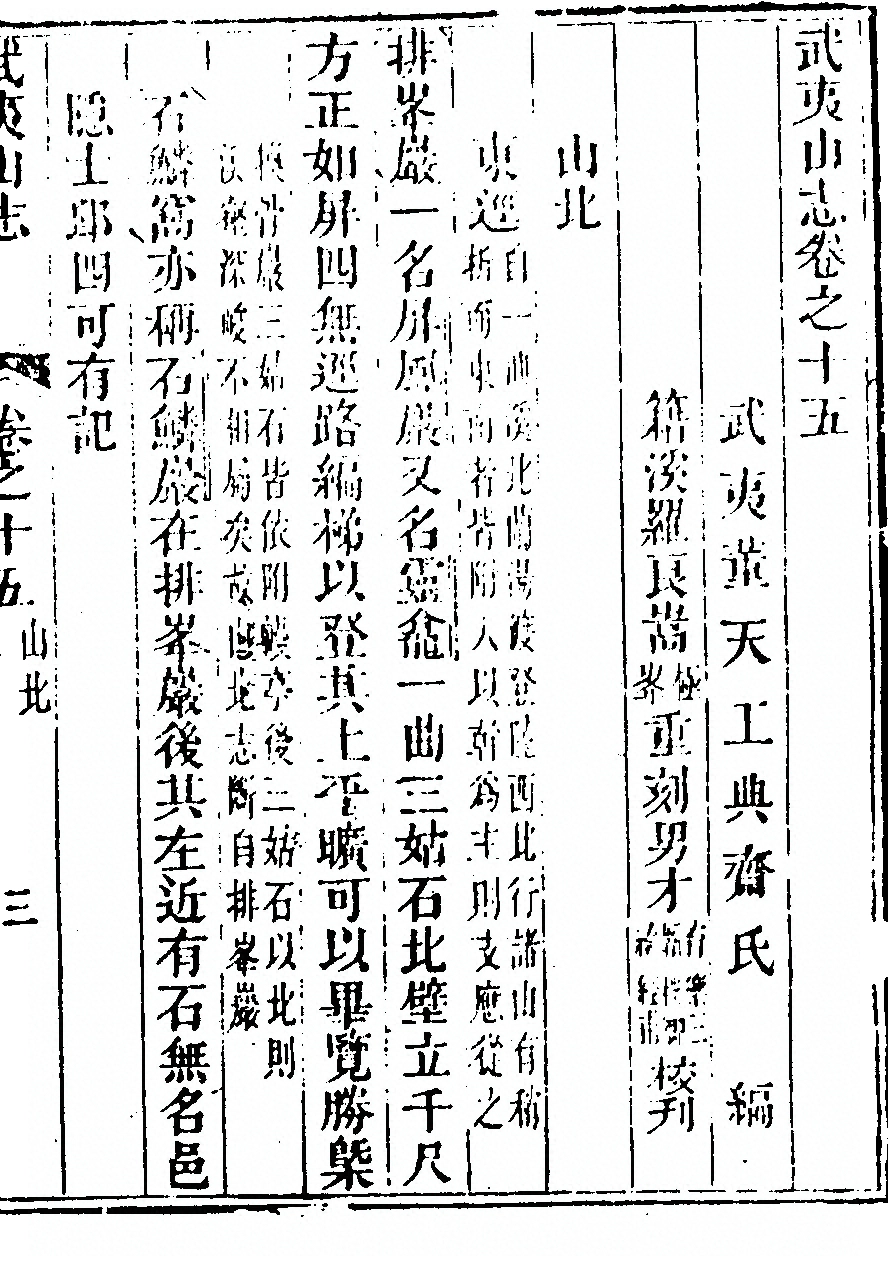 武夷山志卷之十五
武夷董天工典齋氏 編
籍溪羅良嵩 極峯 重刻男才 校刊
山北
東巡 自一曲溪北蘭湯渡登陸西北行諸山有稱
折而東南者皆附入以幹為主則支應從之
排峯巖一名屏風巖又名靈龕一曲三姑石北壁立千尺
方正如屏四無巡路編梯以登其上平曠可以畢覽勝槩
換骨巖三姑石皆依附幔亭後三姑石以北則
深峻不相屬矣故山北志斷自排峯巖
石鱗窩亦稱石鱗巖在排峯巖後其左近有石無名邑
隠士邱四可有記
武夷山志 卷之十五 山北 三